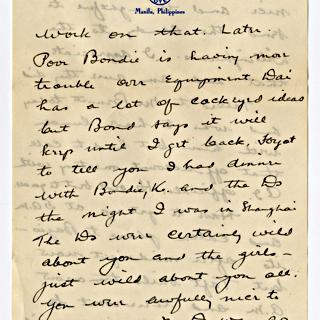 Manila, Philippines
work on that. Later.
Poor Bondie is having more
trouble over equipment. Dai
has a lot of cockeyed ideas
but Bond says it will
keep until I get back. Forgot
to tell you I had dinner
with Bondie, K. and the Ds
the night I was in Shanghai
The Ds were certainly wild
about you and the girls –
just wild about you all.
You were awfully nice to